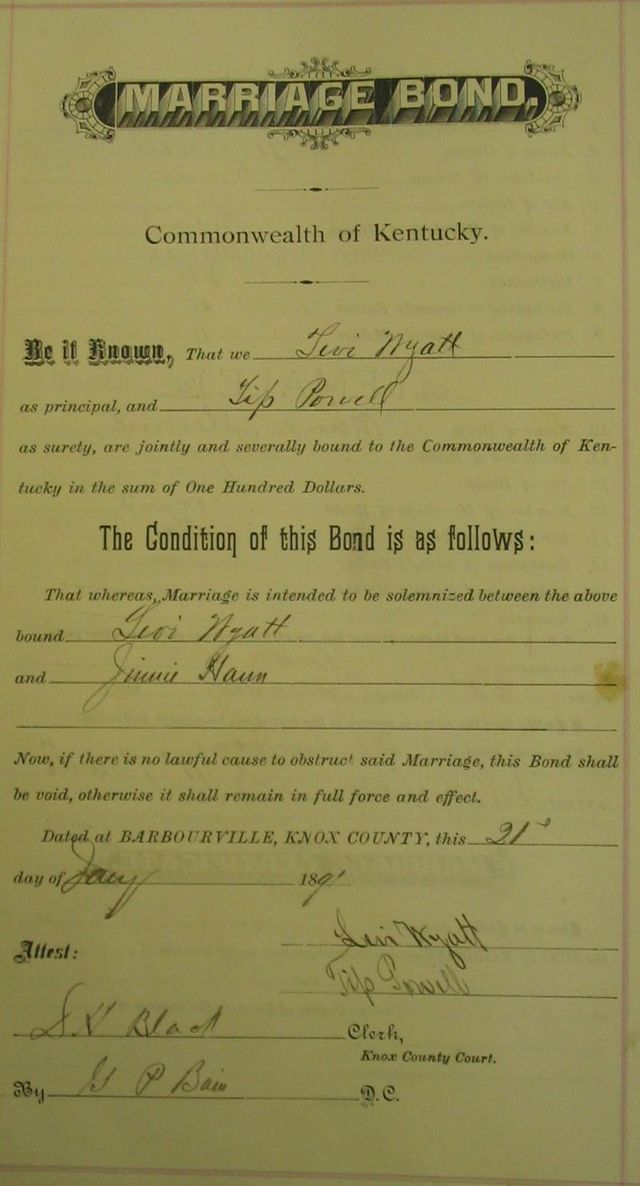 MARRIAGE BOND.
Commonwealth of Kentucky.
Be it Known, That we Levi Wyatt
as principal, and Tip Powell
as surety, are jointly and severally bound to the Commonwealth of Ken-
tucky in the sum of One Hundred Dollars.
The Condition of this Bond is as follows:
That whereas, Marriage is intended to be solemnized between the above
bound Levi Wyatt
and Jinnie Hamn
Now, if there is no lawful cause to obstruct said Marriage, this Bond shall
be void, otherwise it shall remain in full force and effect.
Dated at BARBOURVILLE, KNOX COUNTY, this 21st
day of Jany 1891
Attest: Levi Wyatt
Tip Powell
Black Clerk,
Knox County Court.
By P Bain D.C.